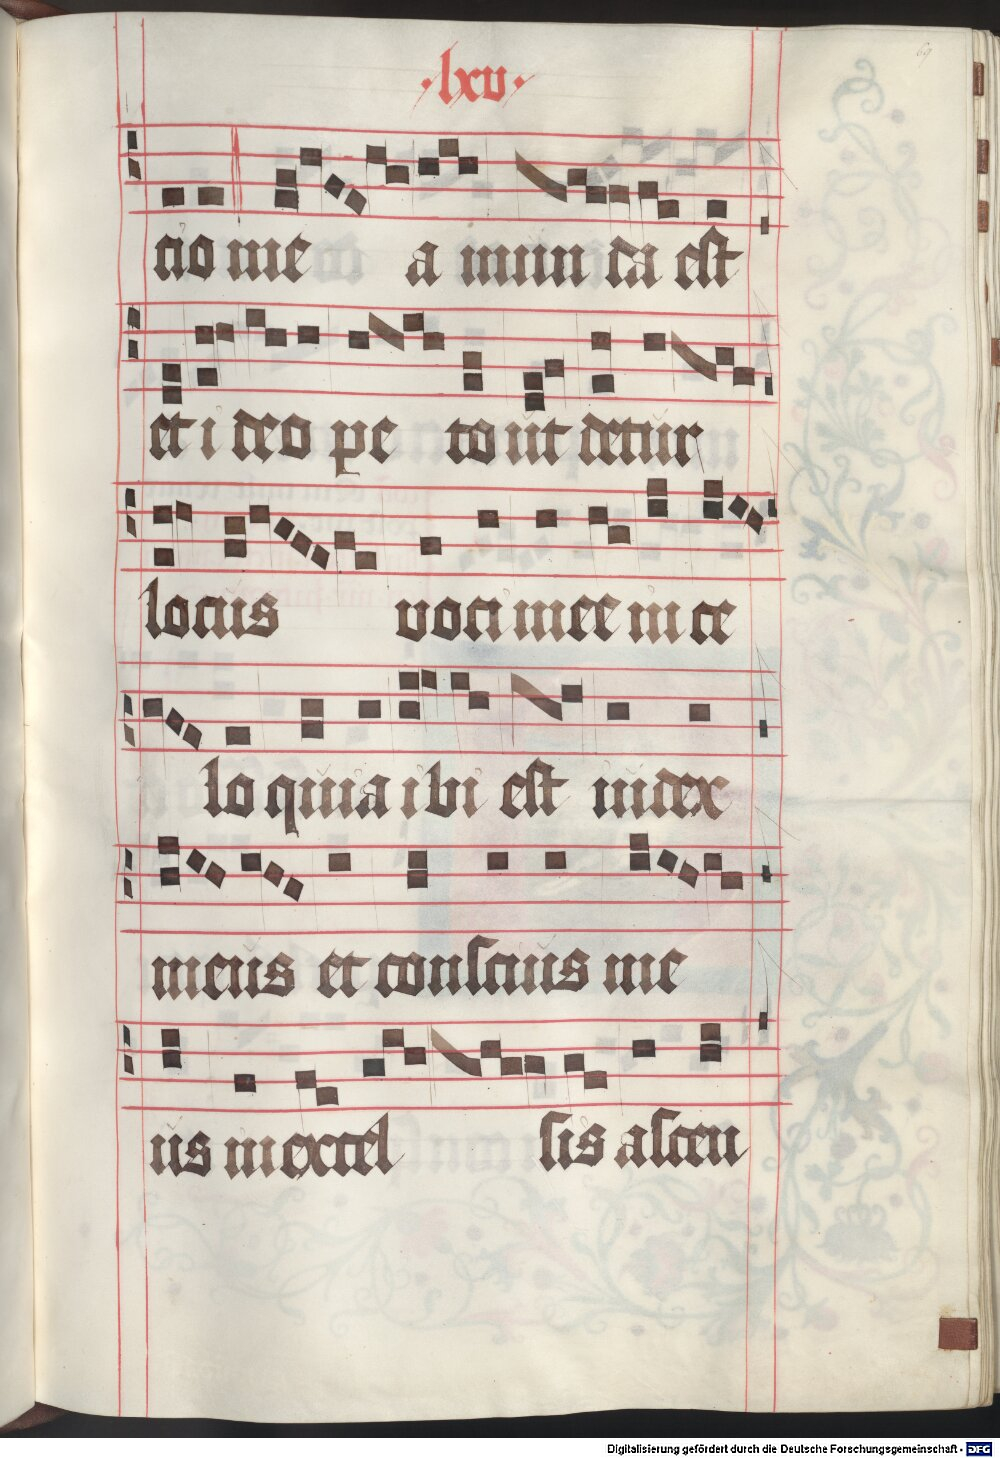 ·lxv·
69
cio me a munda est
et i deo pe to ut detur
locus voci mee in ce
lo quia ibi est iudex
meus et conscius me
us in excel sis ascen
Digitalisierung gefördert durch die Deutsche Forschungsgemeinschaft · DFG